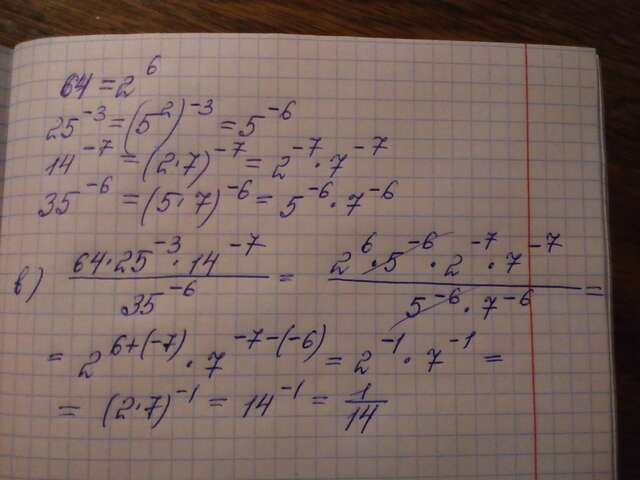 64 = 2^6
25^-3 = (5^2)^-3 = 5^-6
14^-7 = (2·7)^-7 = 2^-7 · 7^-7
35^-6 = (5·7)^-6 = 5^-6 · 7^-6
в) (64·25^-3·14^-7)/(35^-6) = (2^6·5^-6·2^-7·7^-7)/(5^-6·7^-6) =
= 2^(6+(-7)) · 7^(-7-(-6)) = 2^-1 · 7^-1 =
= (2·7)^-1 = 14^-1 = 1/14